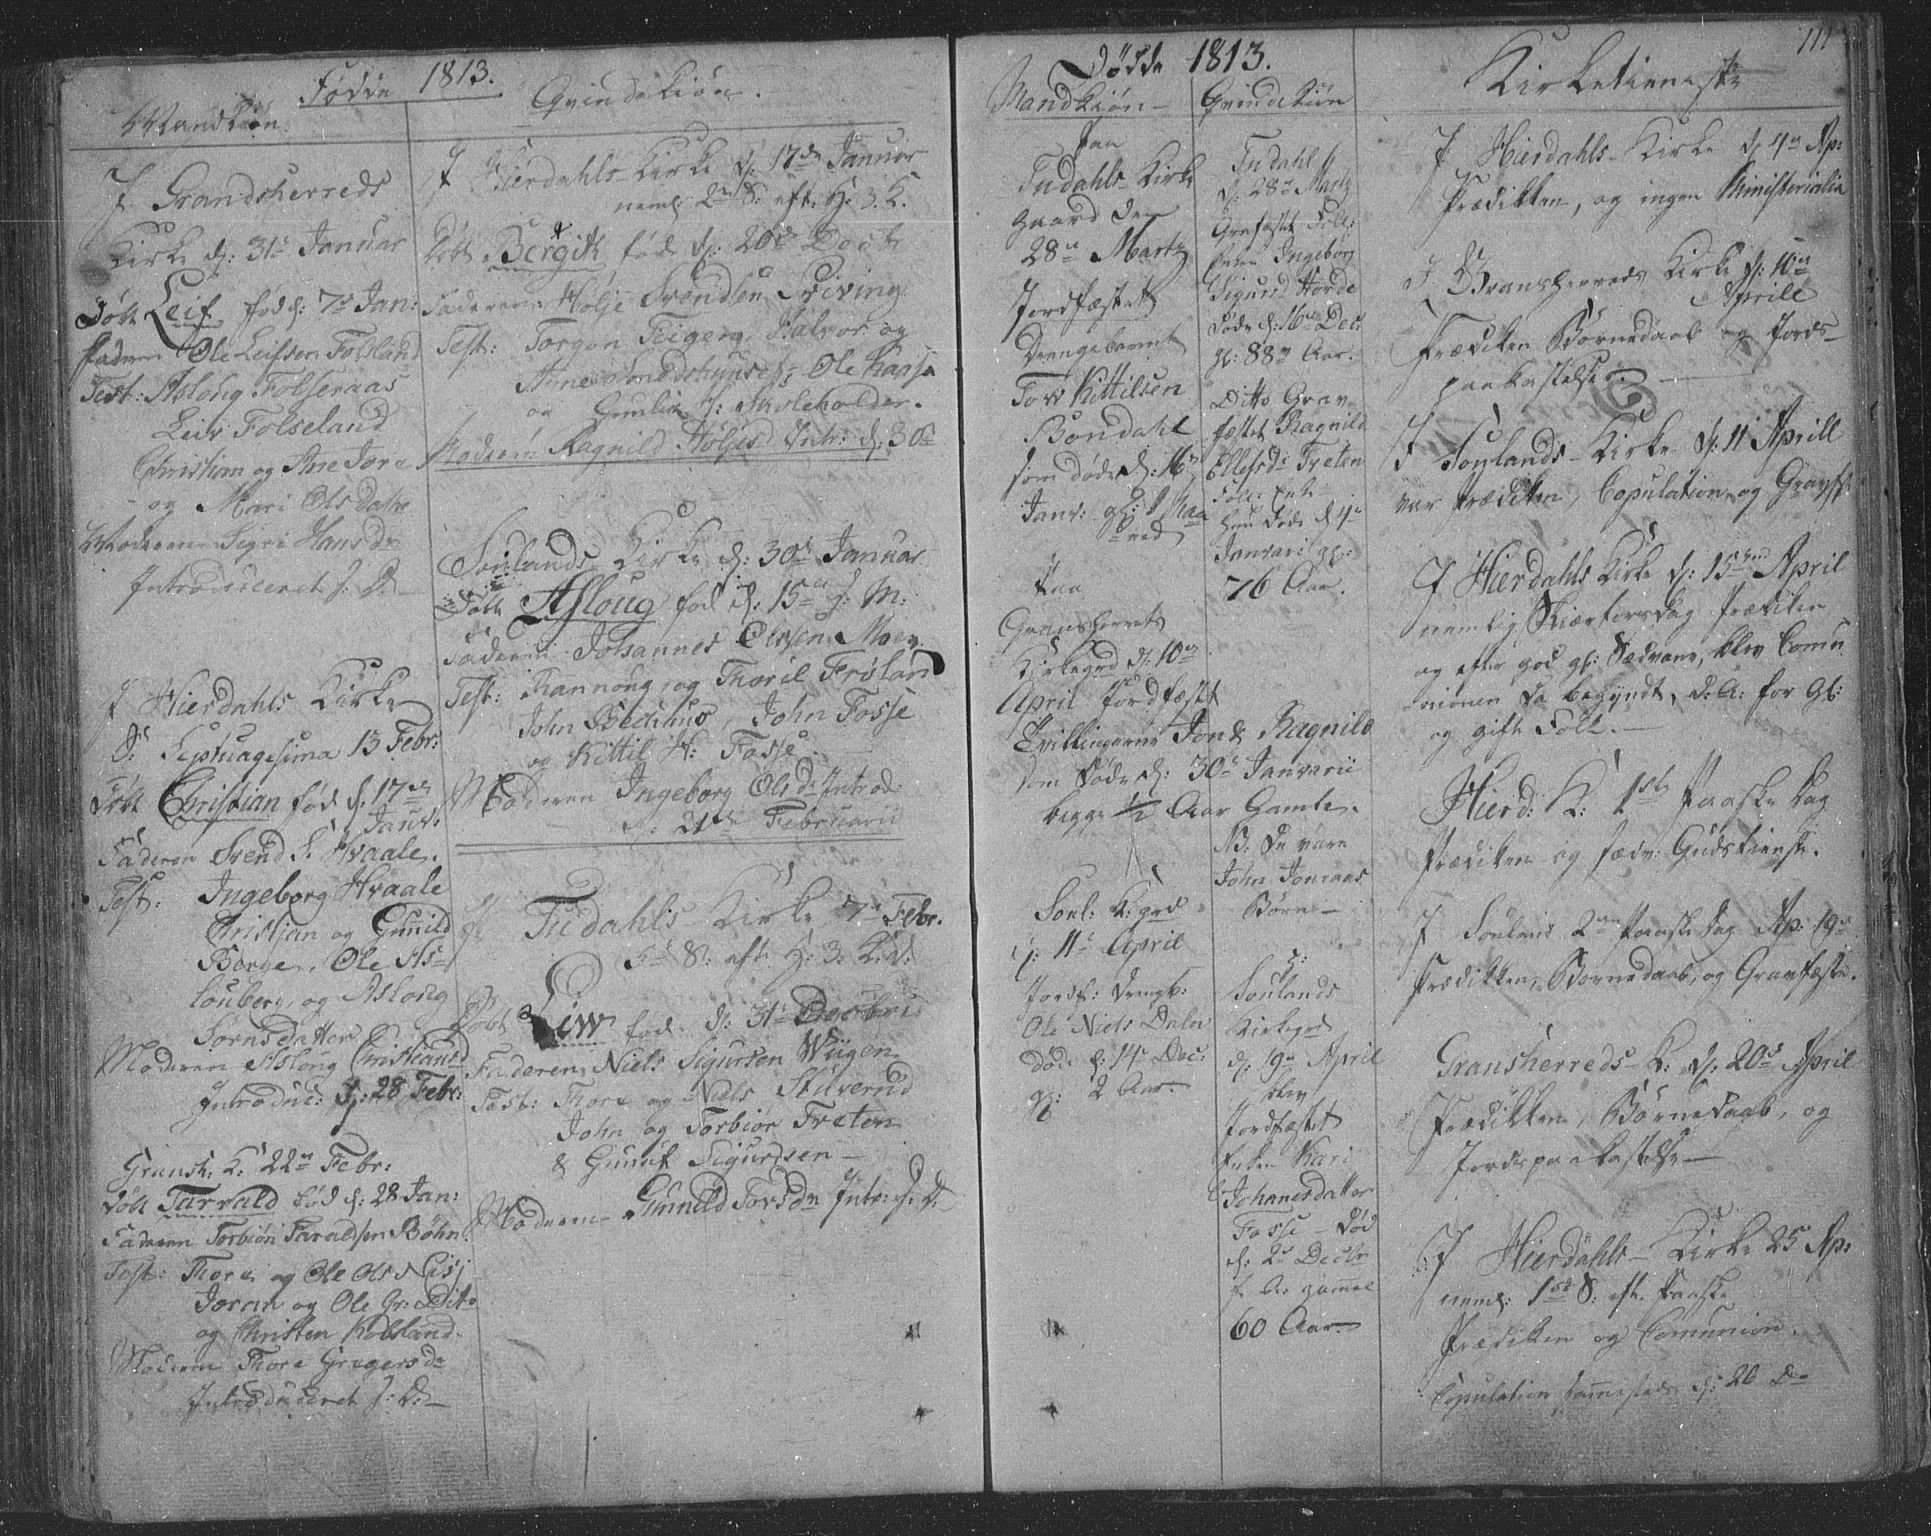 Fødde 1813.
Mandkiøn.
I Grandsherreds
Kirke d: 31te Januar
Døbt Leif fød d: 7de Jan:
Faderen Ole Leifsen Folsland
Test: Aslong Folseraas
Leiv Folseland
Christian og Ane Jore
og Mari Olsdatter
Moderen Sigri Hansdr
Introduceret s: D:
I Hierdahls Kirke
S: Septuagesima 13 Febr:
Døbt Christian fød d: 17de
Janv:
Faderen Svend S. Hvaale.
Test: Ingeborg Hvaale
Christian og Gunild
Borge, Ole As-
louberg, og Aslong
Sørnsdatter
Moderen Aslong Christiansd
Introduc: d: 28 Febr:
Gransh. K: 22de Febr:
Døbt Tarvald fød d: 28 Jan:
Faderen Torbiøn Taraldsen Bøhn.
Test: Thore og Ole Ols Nisj
Joran og Ole Gr: Dito
og Christen Kolsland.
Moderen Thore Gregersdr
Introduceret s: D:
Qvindekiøn.
I Hierdahls Kirke d: 17de Januar
neml: 2den S: eft. H: 3. K.
Døbt Bergit fød d: 20de Decbr
Faderen Hølje Svendsen Qviving
Test: Torgon Teigen, Halvor og
Anne Smedshuus Ole Kaasa
og Gunlik Skoleholder.
Moderen Ragnild Høljesd Intr: d: 30te
Soulands Kirke d: 30te Januar
Døbt Asloug fød d: 15de s: M:
Faderen Johannes Olsen Moen
Test: Rannoug og Thoril Frøland
John Bechhus, John Fosse
og Kittil H: Fosse
Moderen Ingeborg Olsdr Introd
d: 21de Februarii
I Tudahls Kirke 7de Febr.
5te S: eft. H: 3. K: d:
Døbt Liw fød d: 31te Decbris
Faderen Niels Sigursen Wiigen
Test: Thore og Niels Stilverud
John og Torbiør Treten
& Gunuf Sigurdsen
Moderen Gunnild Torsdr Intr: s: D:
Dødde 1813.
Mandkiøn
Paa
Tudahls Kirke
gaard den
28de Martz
Jordfæstet
Drengebarnet
Tov Kittilsen
Bondahl
som døde d: 16de
Janv: gl:
Paa
Gransherrets
Kirkegrd d: 10de
April Jordfæstet
Tvillingerne Jon & Ragnild
som døde d: 30te Janvarii
begge 1/2 Aar Gamle.
Soul: K: grd
d: 11te April
Jordf: Drengb:
Ole Niels Dalen
død d: 14de Dec:
gl: 2 Aar.
Qvindekiøn
Tudahl
d: 28de Martz
Gravfæstet
Enken Ingeborg
Sigurd Horde
Døde d: 16de Dec:
gl: 88 Aar.
Ditto Grav
fæstet Ragnild
Ellefsdr Treten
hun døde d: 4de
Janvari gl:
76 Aar.
NB. De vare
John Jonraas
Børn
Soulands
Kirkegrd
d: 19de April
blev
Jordfæstet
Enken Kari
Johanesdatter
Fosse død
d: 2de Decbr
f. A: gammel
60 Aar.
111
Kirketieneste
I Hierdahls Kirke d: 4de Ap:
Prædikken, og ingen Ministerialia
I Gransherreds Kirke d: 10de
Aprill
Prædiken Børnedaab og Jords-
paakastelse.
I Soulands Kirke d: 11 Aprill
var Prædiken, Copulation og Gravf:
I Hierdahls Kirke d: 15de April
nemlig Skiertorsdag Prædiken
og efter god gl: Sædvane, blev Comu
nionen da begyndt, D: A: for gl:
og gifte Folk.
Hierd: K: 1ste Paaske dag
Prædiken og sædv: Gudstieneste.
I Souland 2den Paaskedag Ap: 19de
Prædikken, Børnedaab, og Gravfæste.
Gransherreds K: d: 20de April
Prædikken, Børnedaab, og
Jordspaakastelse
I Hierdahls Kirke 25 Ap:
neml: 1ste S: eft. Paaske
Prædiken og Communion.
Copulation sammesteds d: 26 Do